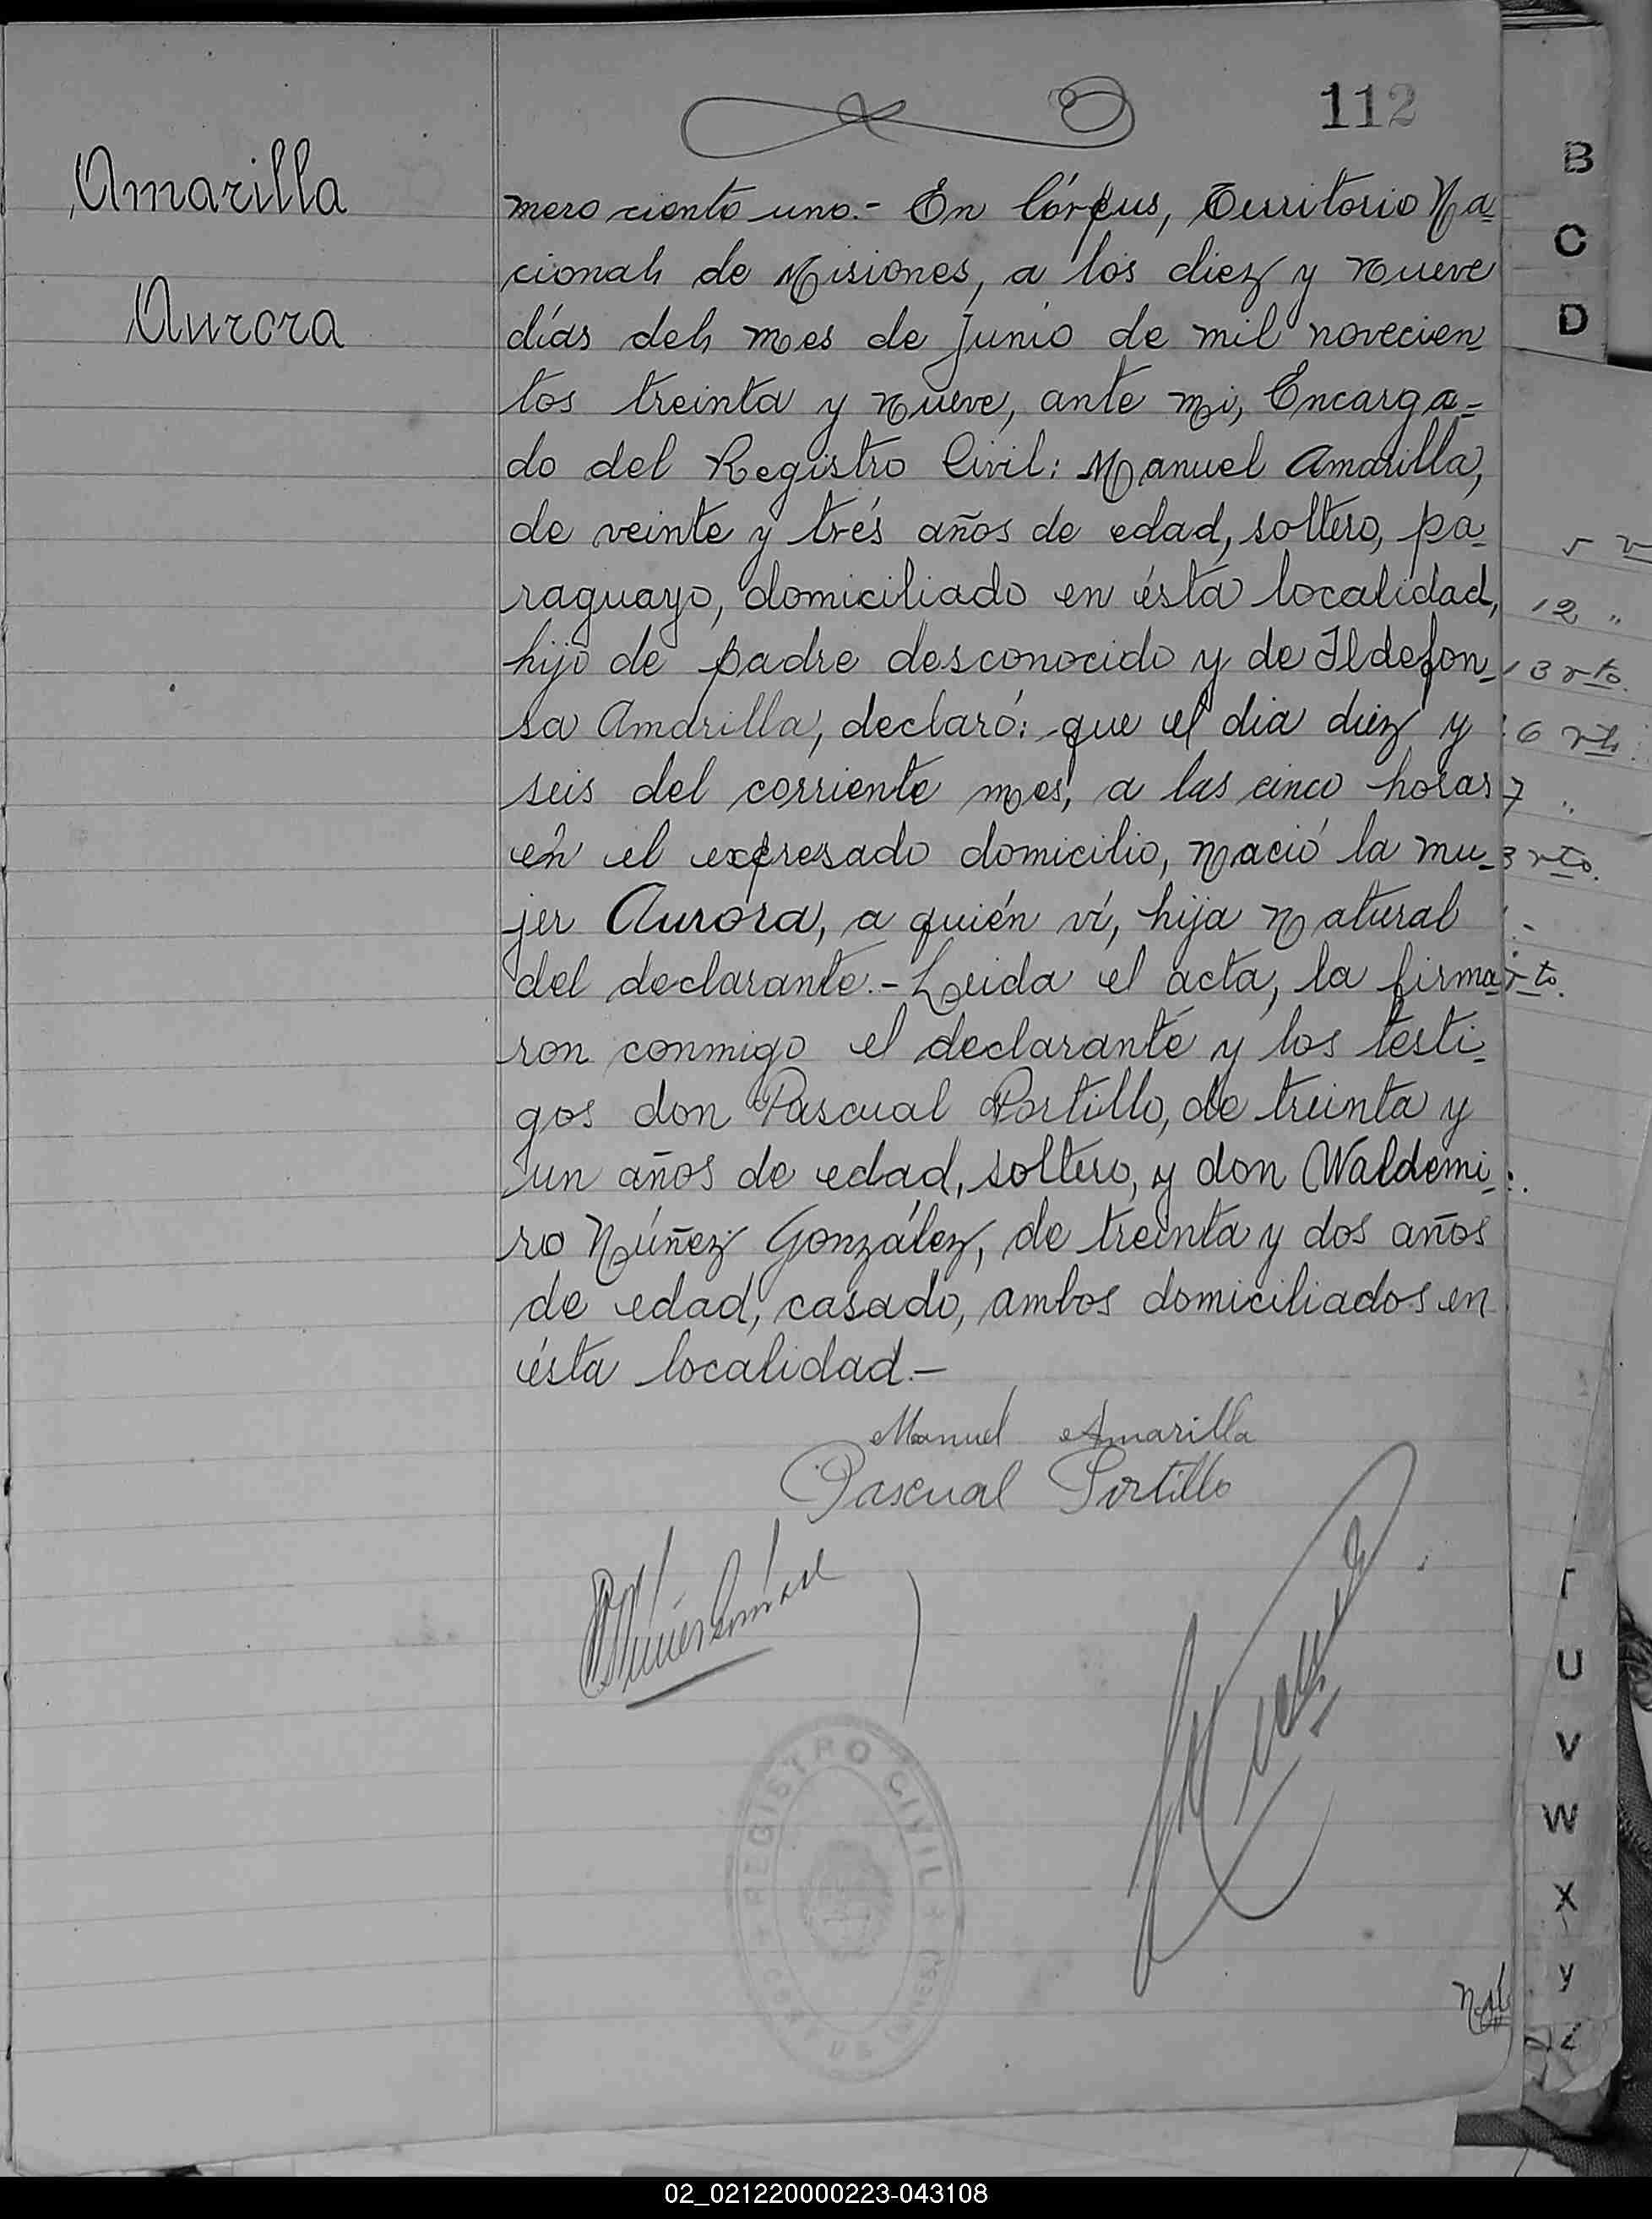 112
Amarilla
Aurora
mero ciento uno.- En Córpus, Territorio Na=
cional de Misiones, a los diez y nueve
días del mes de Junio de mil novecien=
tos treinta y nueve, ante mi, Encarga=
do del Registro Civil: Manuel Amarilla,
de veinte y trés años de edad, soltero, pa=
raguayo, domiciliado en ésta localidad,
hijo de padre desconocido y de Ildefon=
sa Amarilla, declaró: que el dia diez y
seis del corriente mes, a las cinco horas
en el expresado domicilio, nació la mu=
jer Aurora, a quién ví, hija natural
del declarante.- Leida el acta, la firma=
ron conmigo el declarante y los testi=
gos don Pascual Portillo, de treinta y
un años de edad, soltero, y don Waldemi=
ro Núñez González, de treinta y dos años
de edad, casado, ambos domiciliados en
ésta localidad.-
Manuel Amarilla
Pascual Portillo
REGISTRO CIVIL
B
C
D
12 "
U
V
W
X
Y
Z
02_021220000223-043108